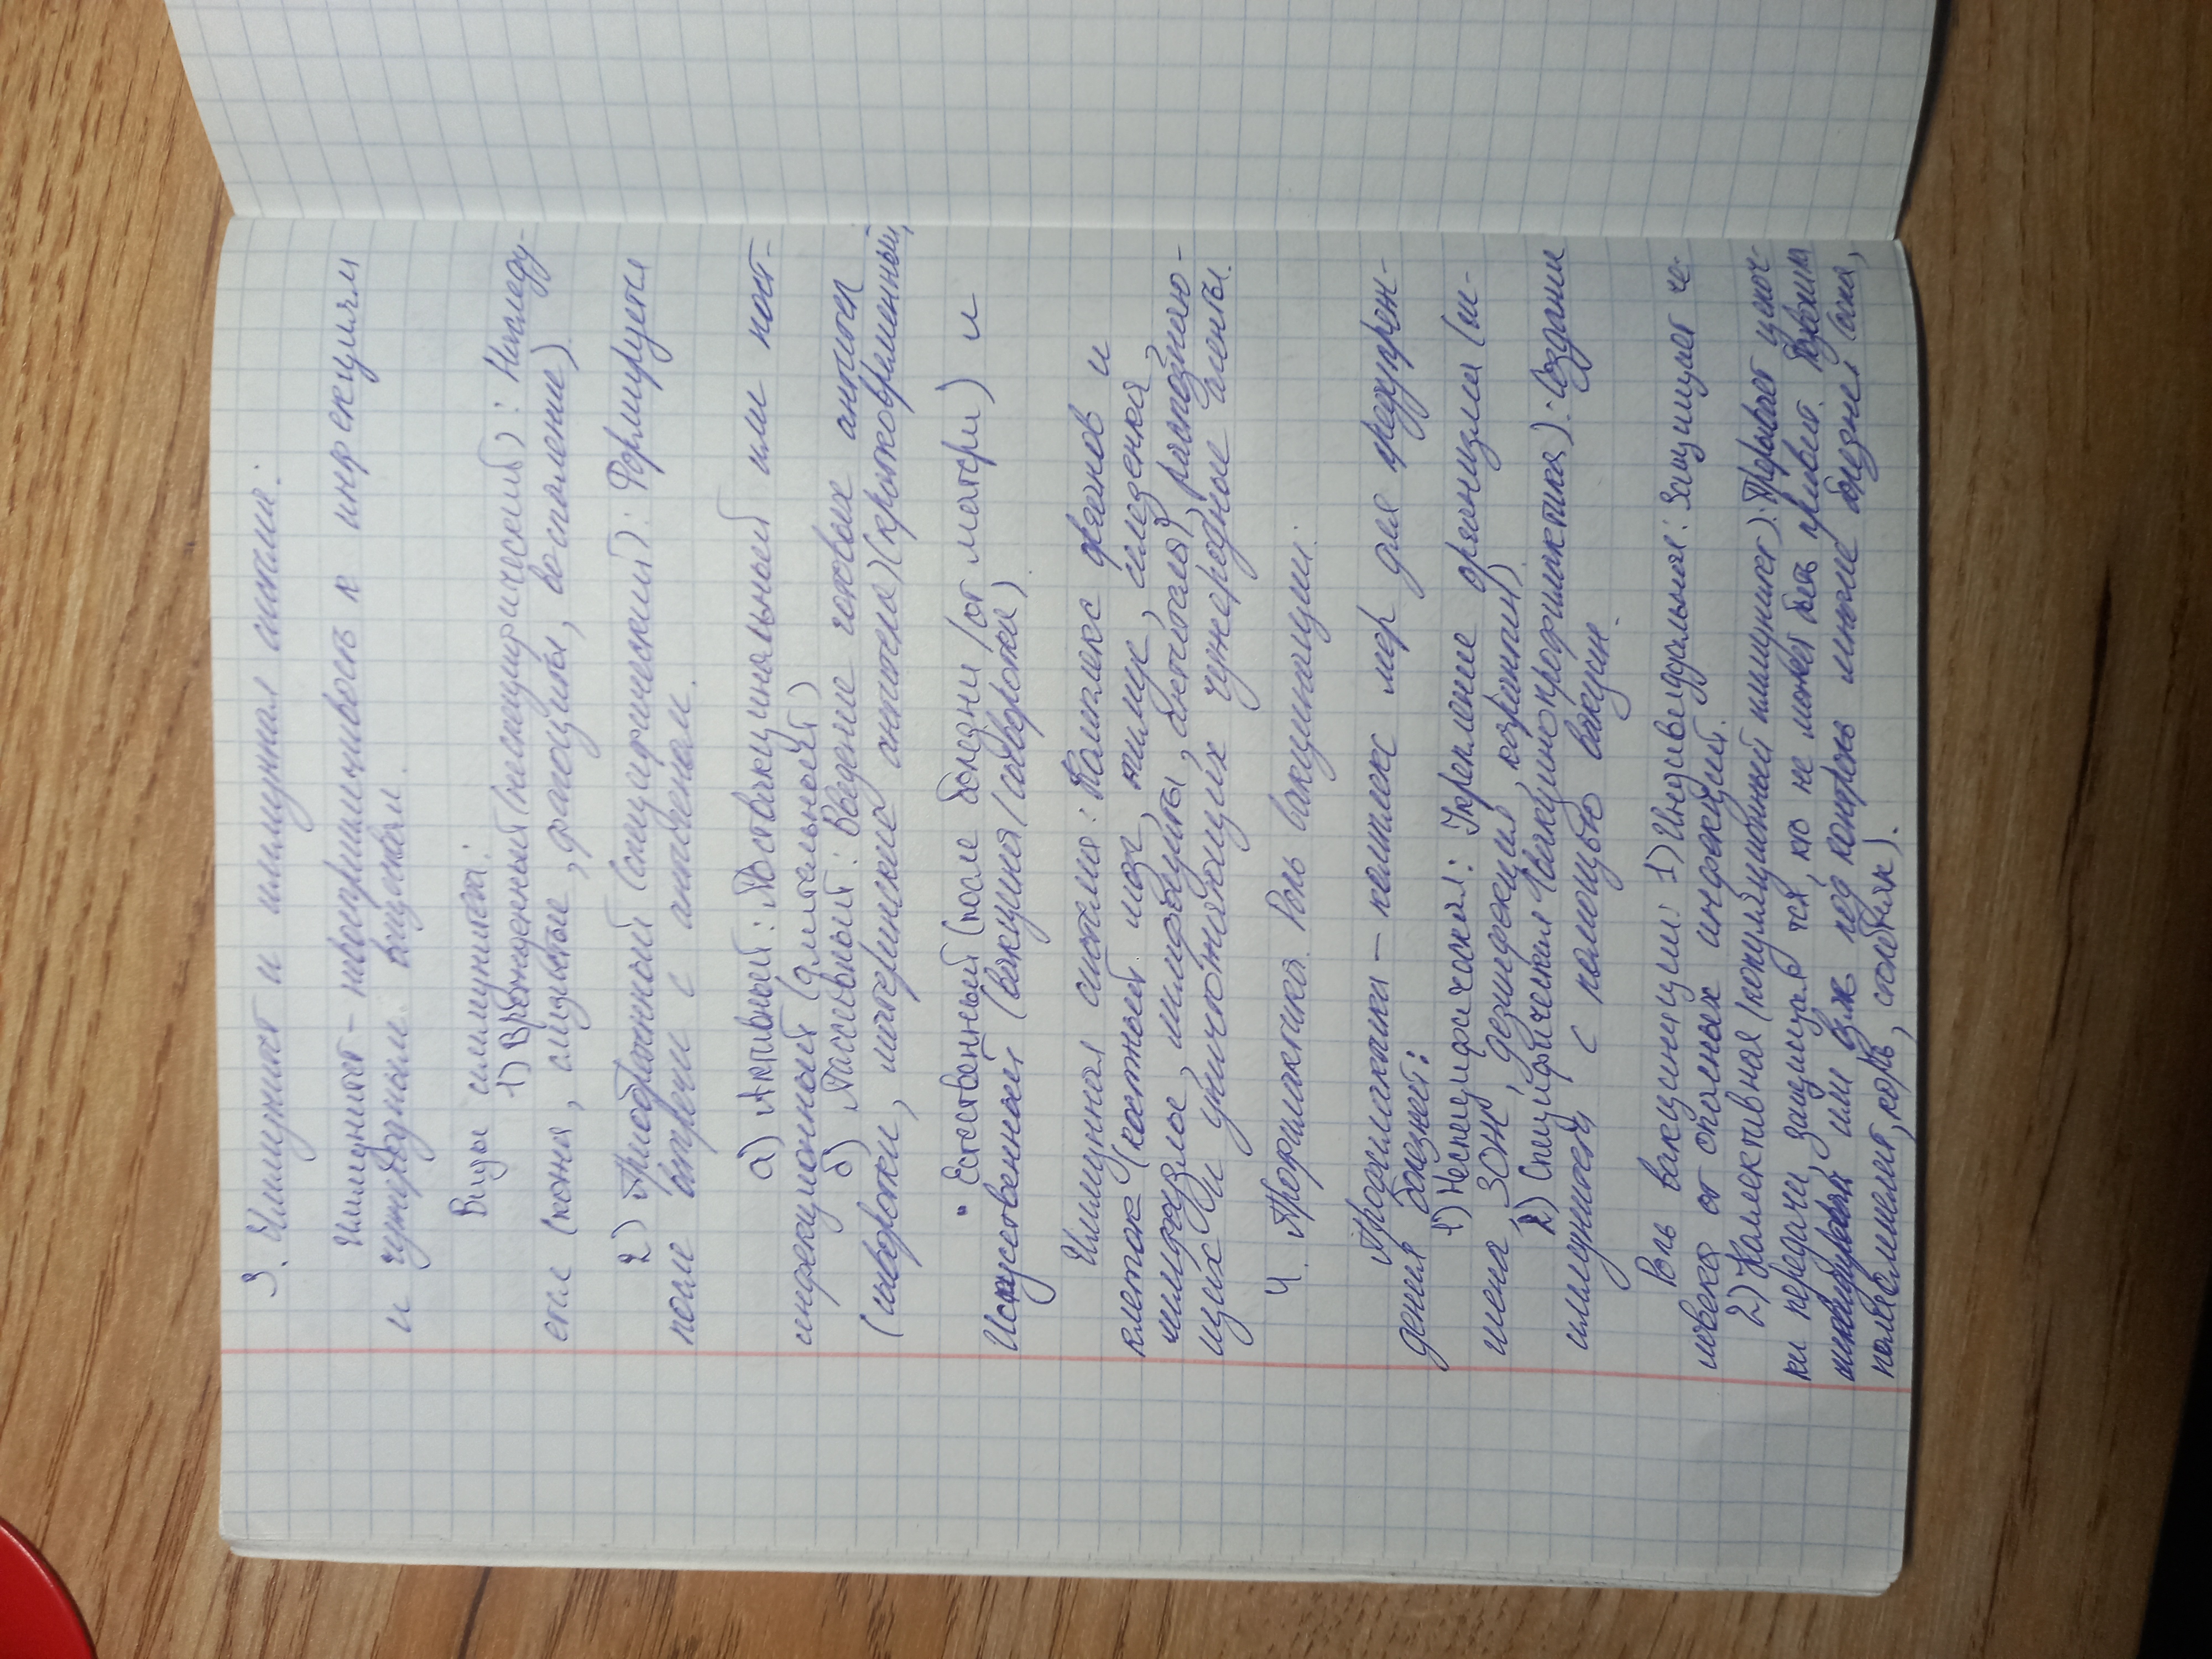 3. Иммунитет и иммунная система.
Иммунитет – невосприимчивость к инфекциям
и чужеродным веществам.
Виды иммунитета:
1) Врожденный (неспецифический): Наследу-
ется (кожа, слизистые, фагоциты, воспаление).
2) Приобретенный (специфический): Формируется
после встречи с антигеном.
а) Активный: Поствакцинальный или пост-
инфекционный (длительный)
б) Пассивный: Введение готовых антител
(сыворотки, материнские антитела) (кратковременный)
• Естественный (после болезни/от матери) и
Искусственный (вакцина/сыворотка)
Иммунная система: Комплекс органов и
клеток (костный мозг, тимус, селезенка,
лимфоузлы, лимфоциты, антитела), распознаю-
щих и уничтожающих чужеродные агенты.
4. Профилактика. Роль вакцинации.
Профилактика – комплекс мер для предупреж-
дения болезней:
1) Неспецифическая: Укрепление организма (ги-
гиена, ЗОЖ, дезинфекция, карантин)
2) Специфическая (вакцинопрофилактика): Создание
иммунитета с помощью вакцин.
Роль вакцинации: 1) Индивидуальная: Защищает че-
ловека от опасных инфекций.
2) Коллективная (популяционный иммунитет): Прерывает цепоч-
ки передачи, защищая тех, кто не может быть привит.
или под контроль многие болезни (оспа,
полиомиелит, корь, столбняк).